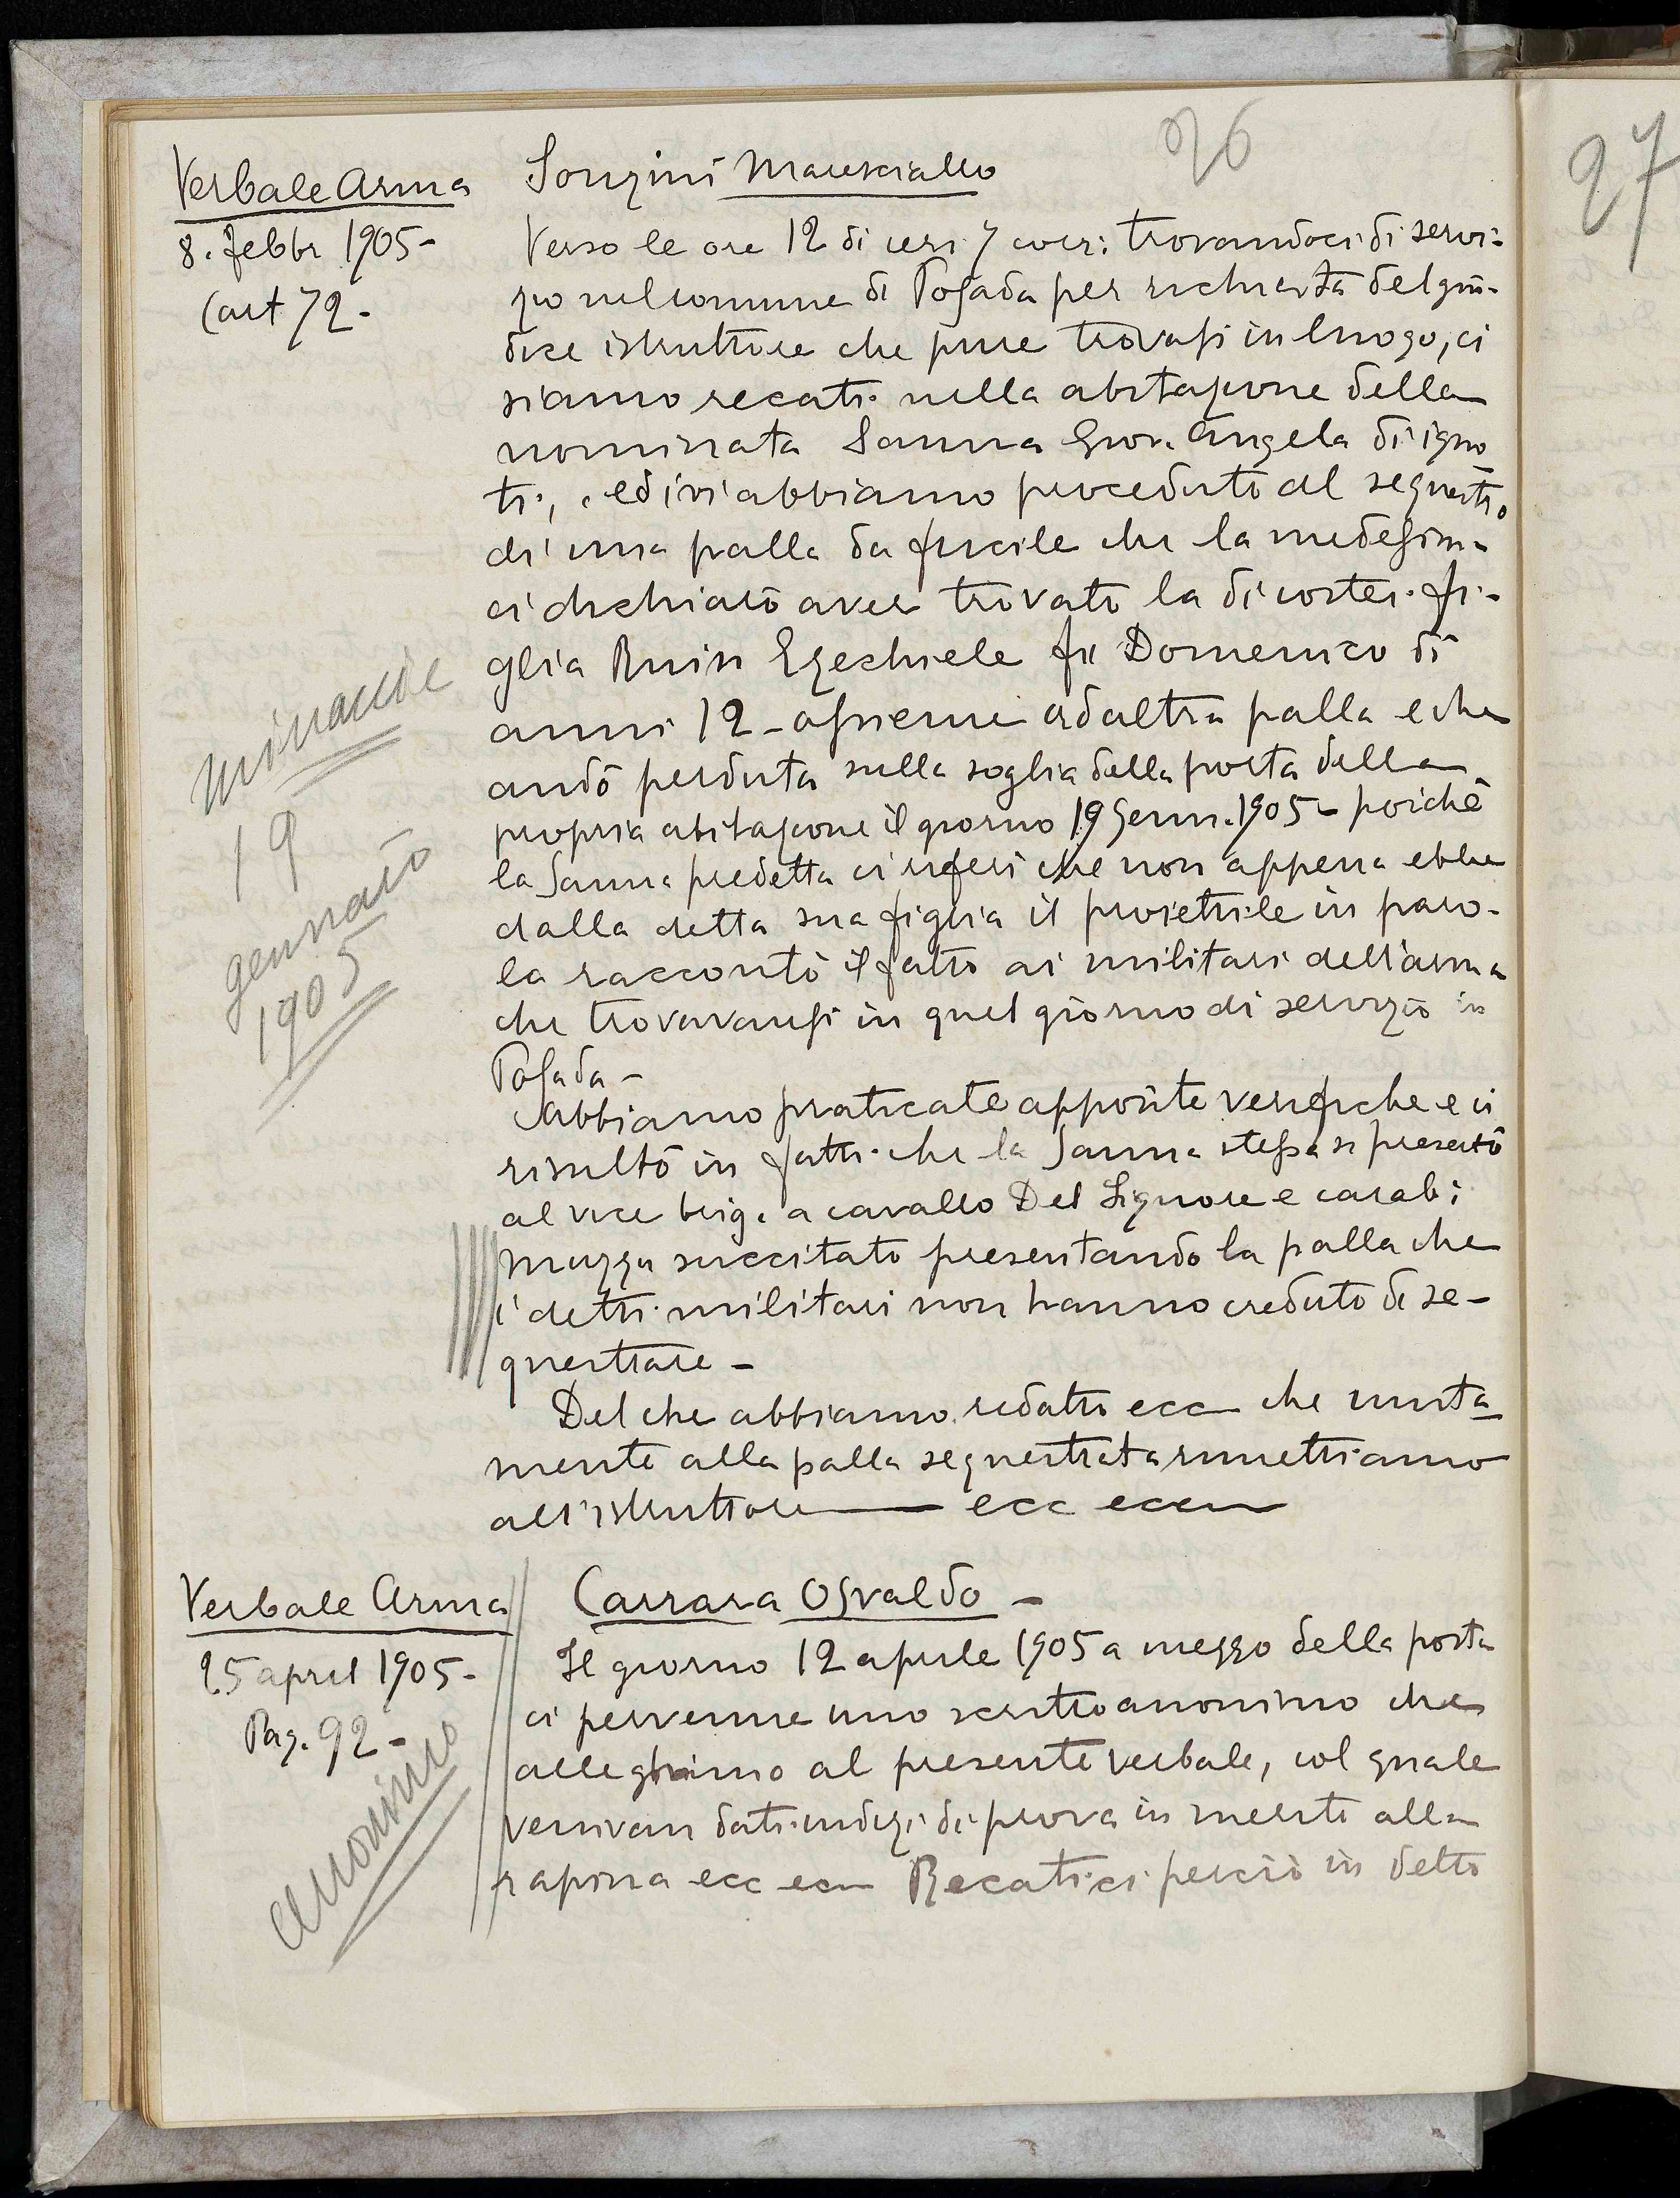 26
27
Verbale Arma
8. febbr 1905-
(art 72-
Sonzini Maresciallo
Verso le ore 12 di ieri 7 corr: trovandoci di servi-
zio nel comune di Posada per richiesta del giu-
dice istruttore che pure trovasi in luogo, ci
siamo recati nella abitazione della
nominata Sanna Giov. Angela di igno
ti, ed ivi abbiamo proceduto al sequestro
di una palla da fucile che la medesima
ci dichiarò aver trovato la di costei fi-
glia Ruiu Ezechiele fu Domenico di
anni 12 - assieme ad altra palla e che
andò perduta sulla soglia della porta della
propria abitazione il giorno 19 Genn. 1905 - poichè
la Sanna predetta ci riferì che non appena ebbe
dalla detta sua figlia il proiettile in paro-
la raccontò il fatto ai militari dell'arma
che trovavansi in quel giorno di servizio in
Posada -
Abbiamo praticate apposite verifiche e ci
risultò in fatti che la Sanna stessa si presentò
al vice brig. a cavallo Del Signore e carab:
Muzzu succitato presentando la palla che
i detti militari non hanno creduto di se-
questrare -
Del che abbiamo redatto ecc che unita
mente alla palla sequestrata rimettiamo
all'istruttore ecc ecc
minaccie
19
gennaio
1905
Verbale Arma
25 april 1905-
Pag. 92-
anonimo
Carrara Osvaldo -
Il giorno 12 aprile 1905 a mezzo della posta
ci pervenne uno scritto anonimo che
alleghiamo al presente verbale, col quale
venivan dati indizi di prova in merito alla
rapina ecc ecc Recatici perciò in detto